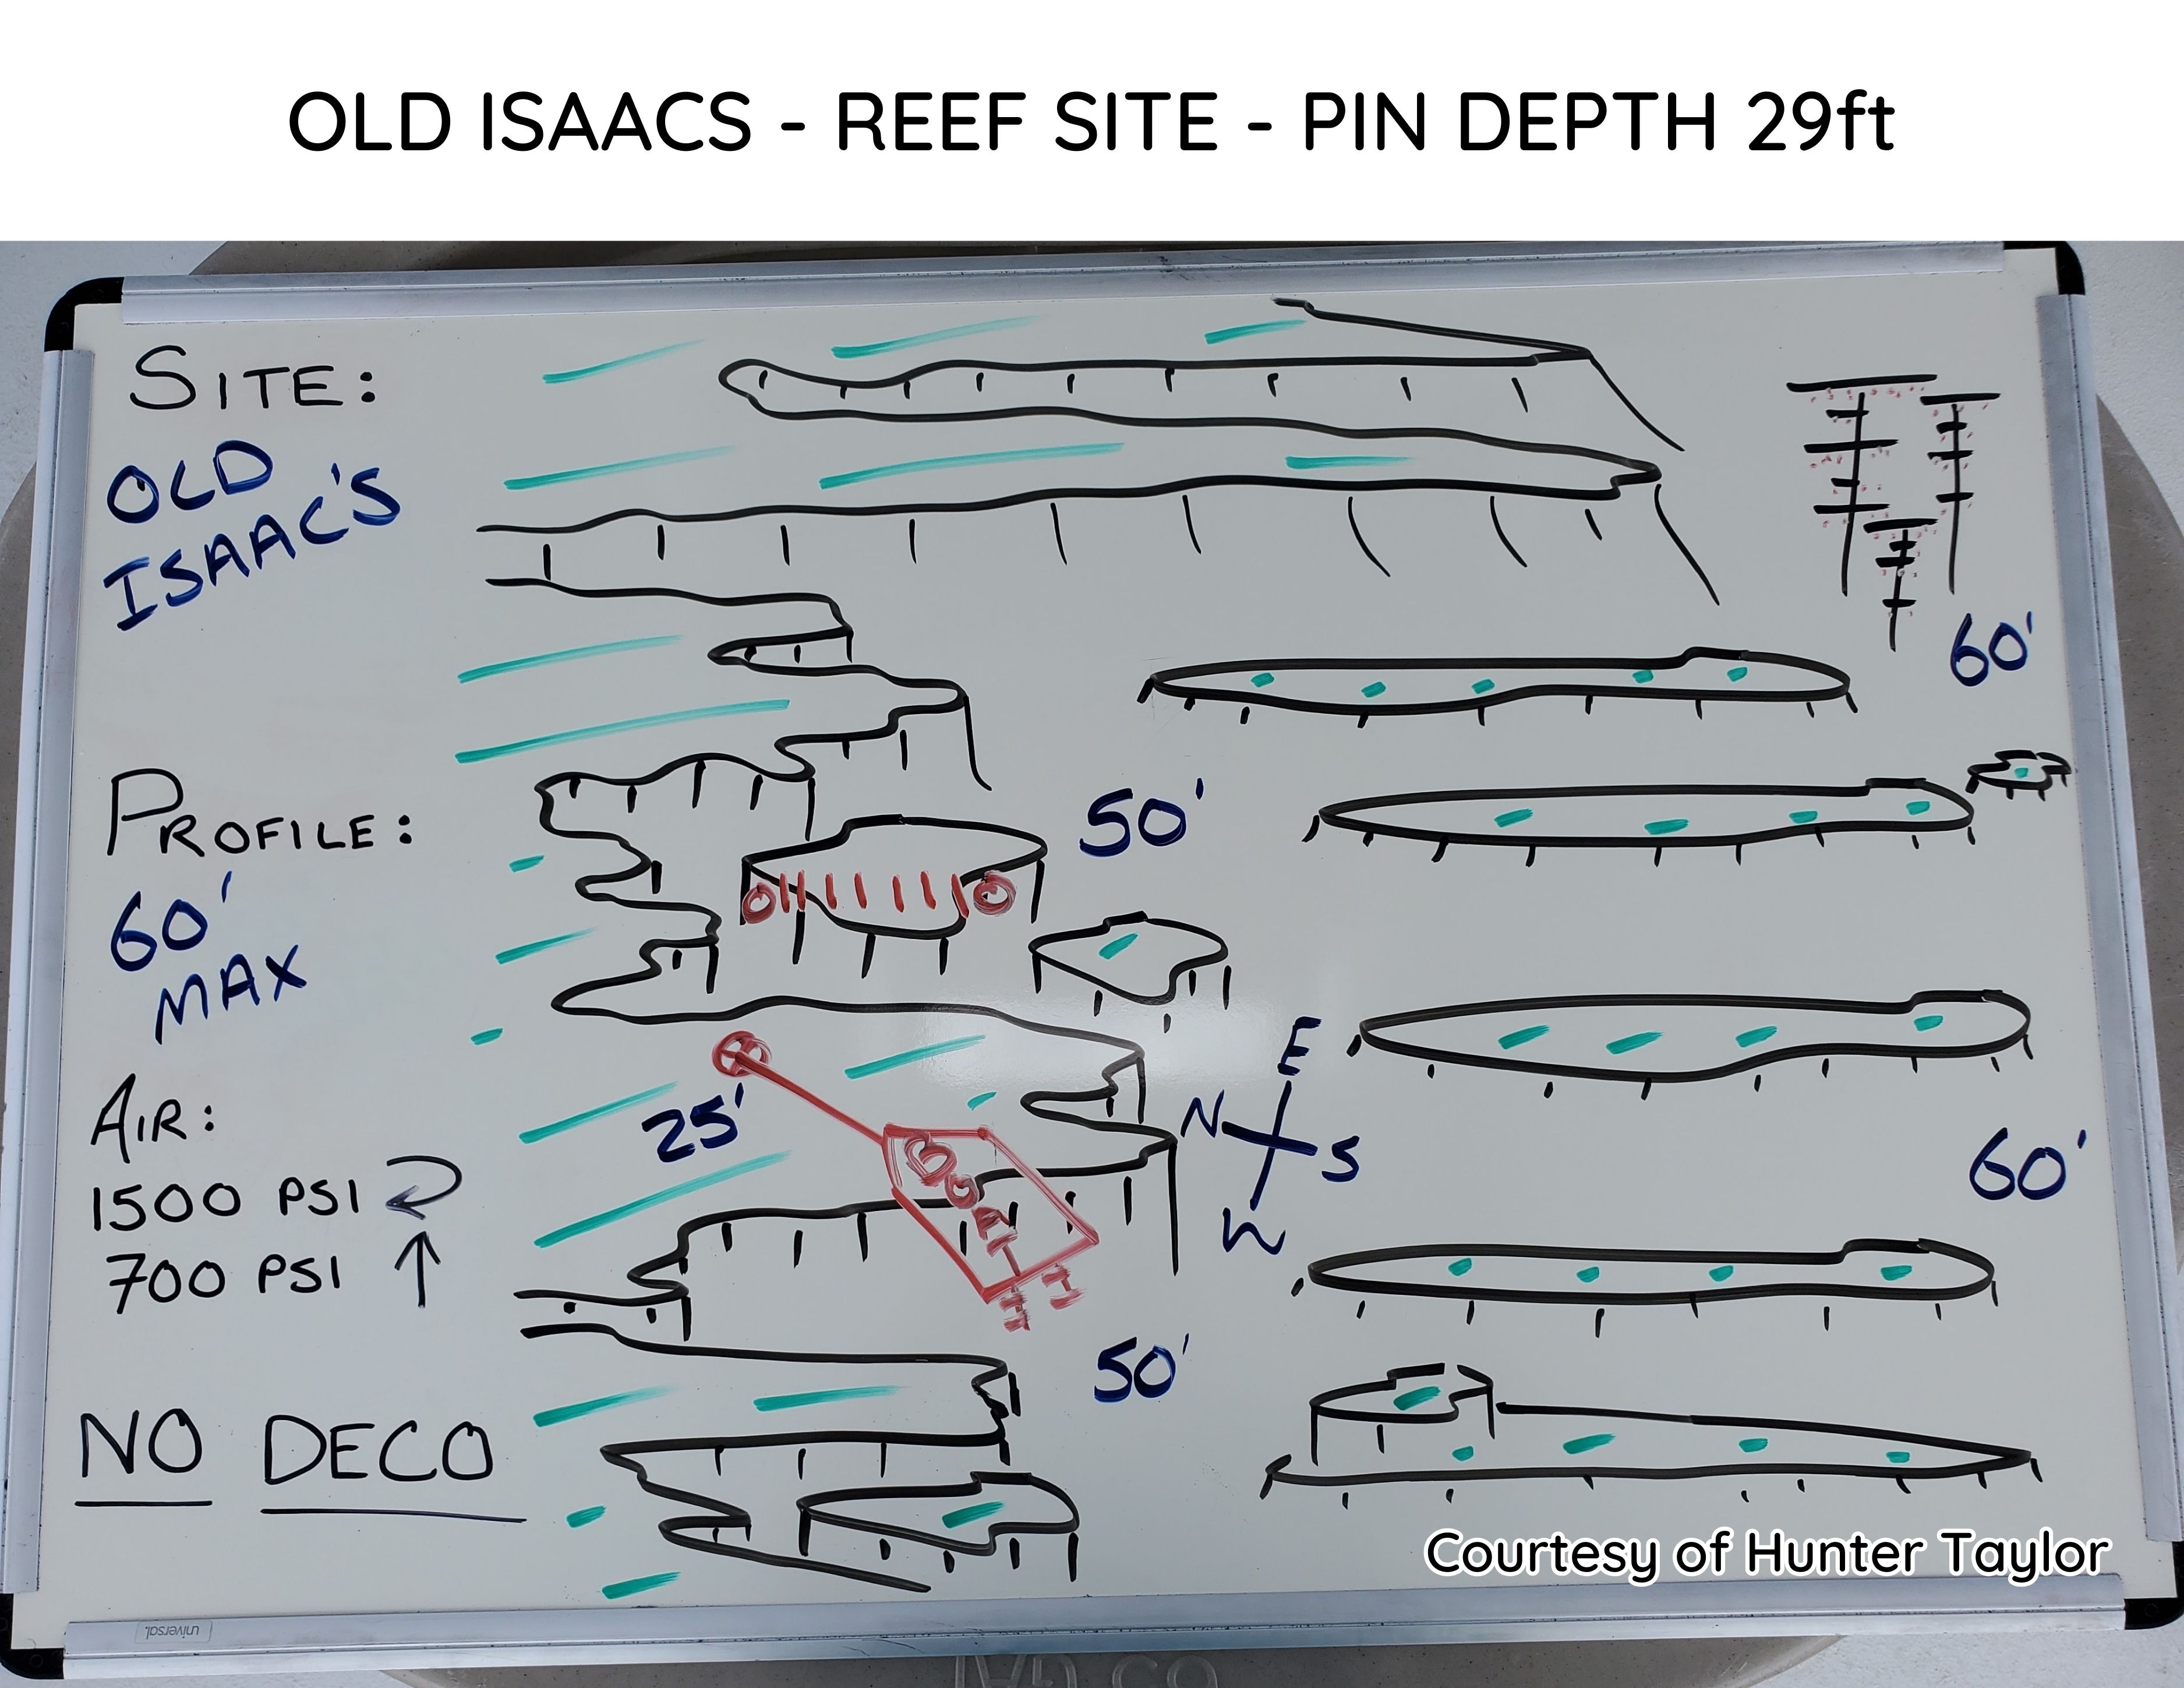 OLD ISAACS - REEF SITE - PIN DEPTH 29ft
SITE:
OLD
ISAAC'S
60'
PROFILE:
60'
MAX
50'
AIR:
1500 PSI
700 PSI
25'
BOAT
E
N
S
W
60'
50'
NO DECO
Courtesy of Hunter Taylor
universal